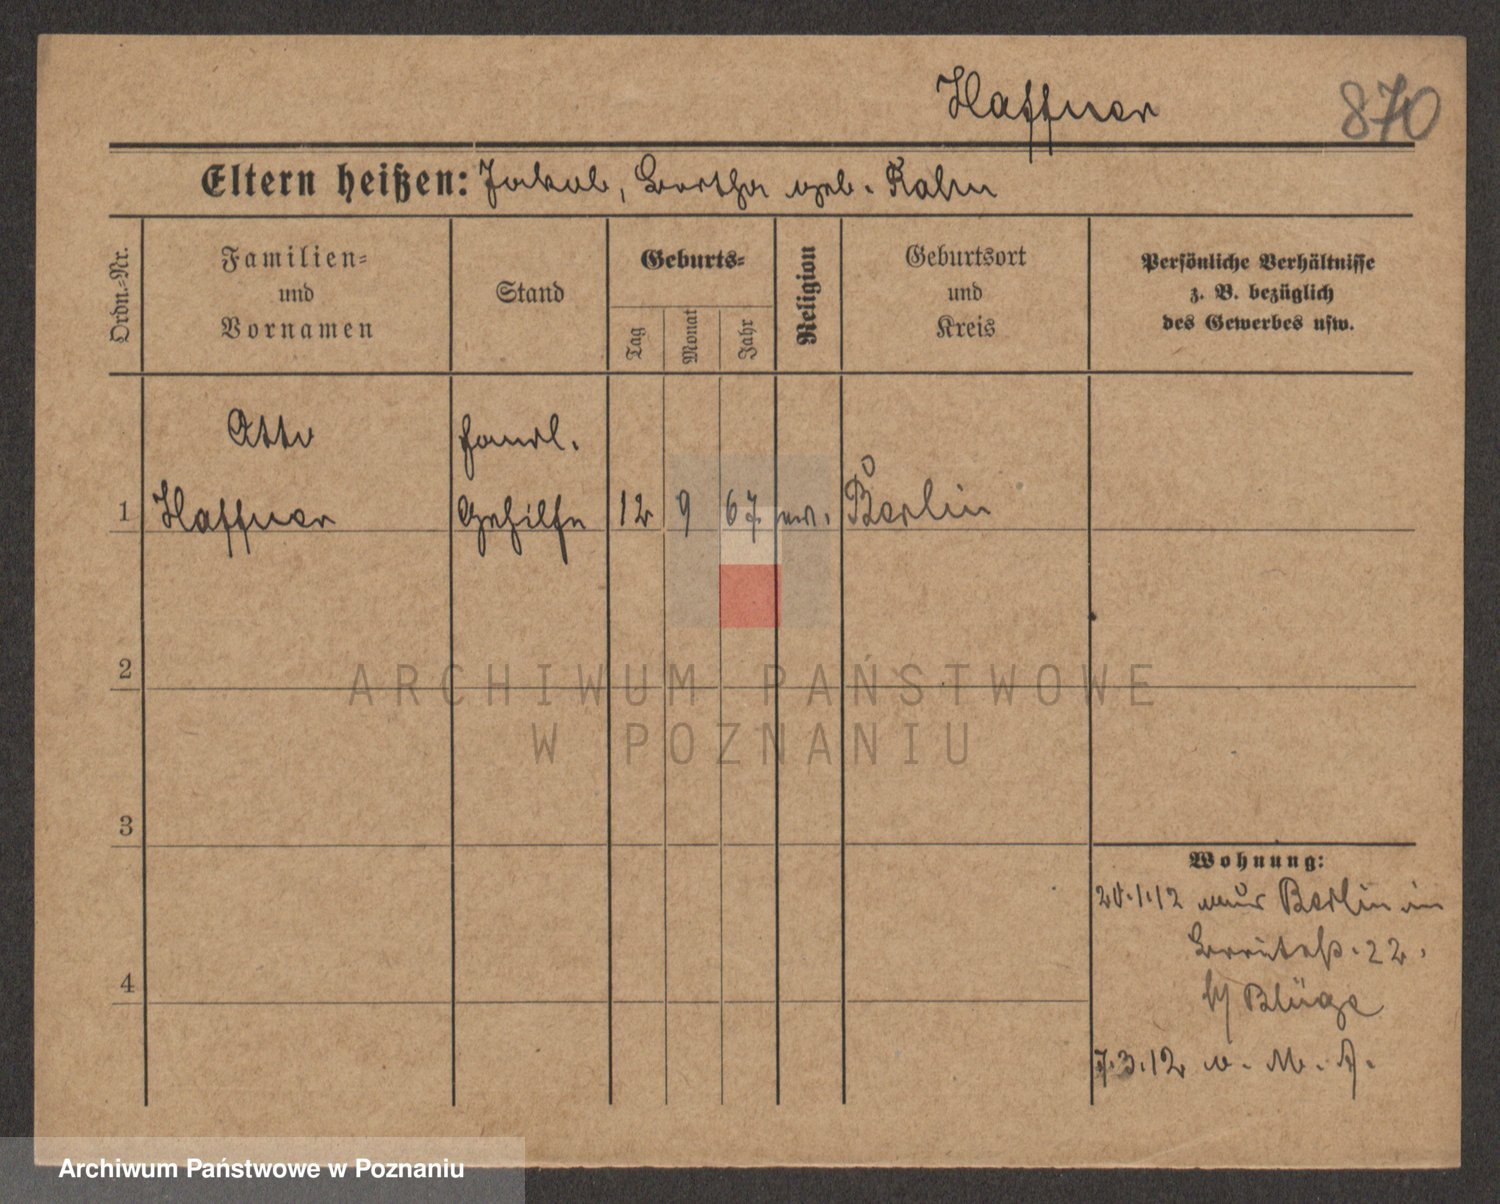 Haffner
870
Eltern heißen: Jakob, Bertha geb. Kalm
Ordn.-Nr.
Familien-
und
Vornamen
Stand
Geburts-
Tag
Monat
Jahr
Religion
Geburtsort
und
Kreis
Persönliche Verhältnisse
z. B. bezüglich
des Gewerbes usw.
Otto
Handl.
1 Haffner Gehilfe 12 9 67 ev. Berlin
2
3
4
ARCHIWUM PAŃSTWOWE
W POZNANIU
Wohnung:
20.1.12 aus Berlin in
Breitestr. 22.
b/ Blüge
7.3.12 v. M. A.
Archiwum Państwowe w Poznaniu